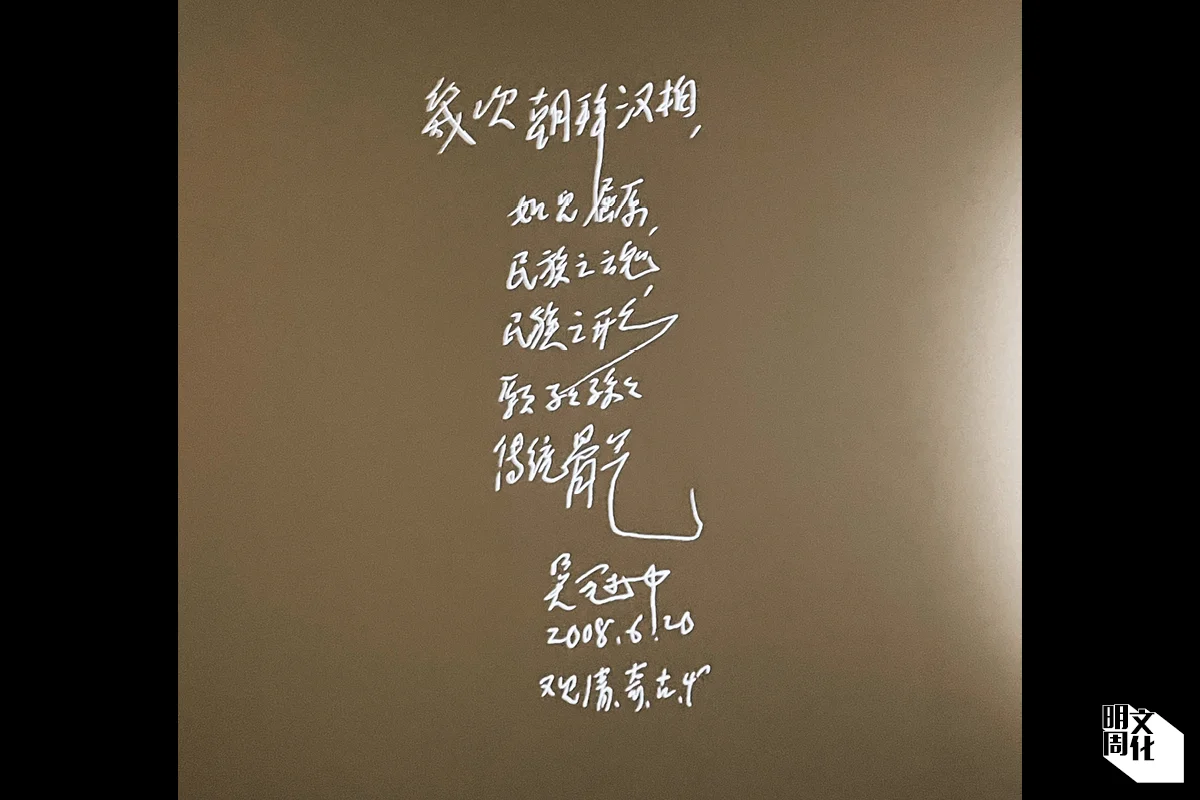 幾次朝拜汉柏，
如见屈原，
民族之魂，
民族之形，
願子々孫々
傳统骨气
吴冠中
2008.6.20
观清.奇.古.怪
明周文化